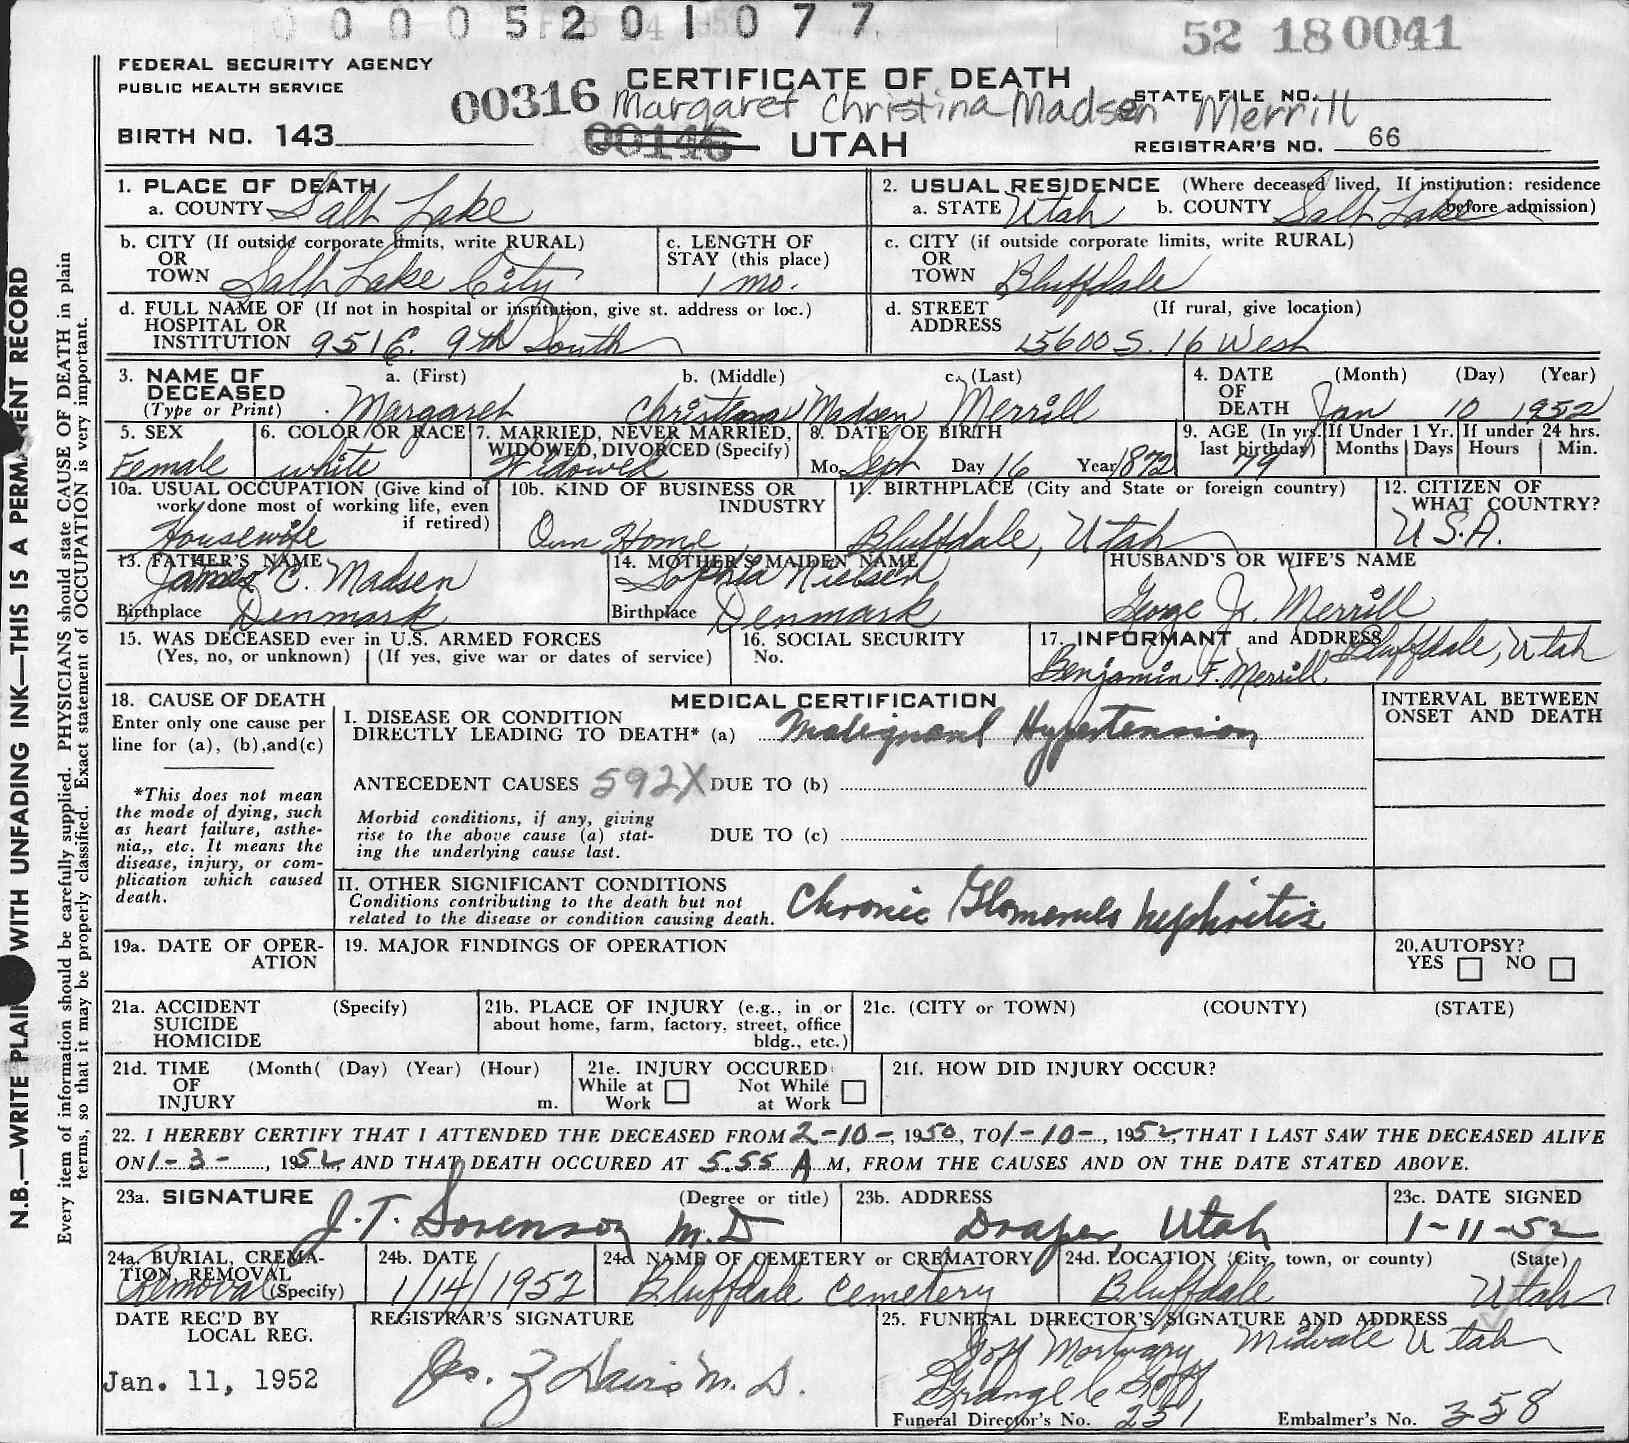 0 0 0 0 5 2 0 1 0 7 7
52 18 0041
FEDERAL SECURITY AGENCY
PUBLIC HEALTH SERVICE
00316
CERTIFICATE OF DEATH
Margaret Christina Madsen Merrill
STATE FILE NO.
BIRTH NO. 143
00146
UTAH
REGISTRAR'S NO. 66
1. PLACE OF DEATH
a. COUNTY Salt Lake
2. USUAL RESIDENCE (Where deceased lived. If institution: residence before admission)
a. STATE Utah b. COUNTY Salt Lake
b. CITY (If outside corporate limits, write RURAL)
OR
TOWN Salt Lake City
c. LENGTH OF
STAY (this place)
1 mo.
c. CITY (if outside corporate limits, write RURAL)
OR
TOWN Bluffdale
d. FULL NAME OF (If not in hospital or institution, give st. address or loc.)
HOSPITAL OR
INSTITUTION 951 E. 9th South
d. STREET (If rural, give location)
ADDRESS
15600 S. 16 West
3. NAME OF DECEASED
(Type or Print)
a. (First) b. (Middle) c. (Last)
Margaret Christina Madsen Merrill
4. DATE OF DEATH (Month) (Day) (Year)
Jan 10 1952
5. SEX
Female
6. COLOR OR RACE
white
7. MARRIED, NEVER MARRIED,
WIDOWED, DIVORCED (Specify)
Widowed
8. DATE OF BIRTH
Mo. Sept Day 16 Year 1872
9. AGE (In yrs. last birthday) 79
If Under 1 Yr. Months Days
If under 24 hrs. Hours Min.
10a. USUAL OCCUPATION (Give kind of
work done most of working life, even
if retired)
Housewife
10b. KIND OF BUSINESS OR
INDUSTRY
Own Home
11. BIRTHPLACE (City and State or foreign country)
Bluffdale, Utah
12. CITIZEN OF
WHAT COUNTRY?
U.S.A.
13. FATHER'S NAME
James C. Madsen
Birthplace Denmark
14. MOTHER'S MAIDEN NAME
Sophia Nielsen
Birthplace Denmark
HUSBAND'S OR WIFE'S NAME
George Jr. Merrill
15. WAS DECEASED ever in U.S. ARMED FORCES
(Yes, no, or unknown) (If yes, give war or dates of service)
16. SOCIAL SECURITY
No.
17. INFORMANT and ADDRESS Bluffdale, Utah
Benjamin F. Merrill
18. CAUSE OF DEATH
Enter only one cause per
line for (a), (b),and(c)
*This does not mean
the mode of dying, such
as heart failure, asthe-
nia,, etc. It means the
disease, injury, or com-
plication which caused
death.
MEDICAL CERTIFICATION
INTERVAL BETWEEN
ONSET AND DEATH
I. DISEASE OR CONDITION
DIRECTLY LEADING TO DEATH* (a) Malignant Hypertension
ANTECEDENT CAUSES 592X DUE TO (b)
Morbid conditions, if any, giving
rise to the above cause (a) stat-
ing the underlying cause last.
DUE TO (c)
II. OTHER SIGNIFICANT CONDITIONS
Conditions contributing to the death but not
related to the disease or condition causing death.
Chronic Glomerulo nephritis
19a. DATE OF OPER-
ATION
19. MAJOR FINDINGS OF OPERATION
20. AUTOPSY?
YES NO
21a. ACCIDENT (Specify)
SUICIDE
HOMICIDE
21b. PLACE OF INJURY (e.g., in or
about home, farm, factory, street, office
bldg., etc.)
21c. (CITY or TOWN) (COUNTY) (STATE)
21d. TIME (Month( (Day) (Year) (Hour)
OF
INJURY m.
21e. INJURY OCCURED
While at Work Not While at Work
21f. HOW DID INJURY OCCUR?
22. I HEREBY CERTIFY THAT I ATTENDED THE DECEASED FROM 2-10-, 1950, TO 1-10-, 1952, THAT I LAST SAW THE DECEASED ALIVE
ON 1-3-, 1952, AND THAT DEATH OCCURED AT 5.55 A M, FROM THE CAUSES AND ON THE DATE STATED ABOVE.
23a. SIGNATURE (Degree or title)
J. T. Sorenson M.D
23b. ADDRESS
Draper, Utah
23c. DATE SIGNED
1-11-52
24a. BURIAL, CREMA-
TION, REMOVAL
Removal (Specify)
24b. DATE
1/14/1952
24c NAME OF CEMETERY OR CREMATORY
Bluffdale Cemetery
24d. LOCATION (City, town, or county) (State)
Bluffdale Utah
DATE REC'D BY
LOCAL REG.
Jan. 11, 1952
REGISTRAR'S SIGNATURE
M.D.
25. FUNERAL DIRECTOR'S SIGNATURE AND ADDRESS
Goff Mortuary Midvale Utah
Goff
Funeral Director's No. 251 Embalmer's No. 358
N.B.—WRITE PLAINLY WITH UNFADING INK—THIS IS A PERMANENT RECORD
Every item of information should be carefully supplied. PHYSICIANS should state CAUSE OF DEATH in plain
terms, so that it may be properly classified. Exact statement of OCCUPATION is very important.